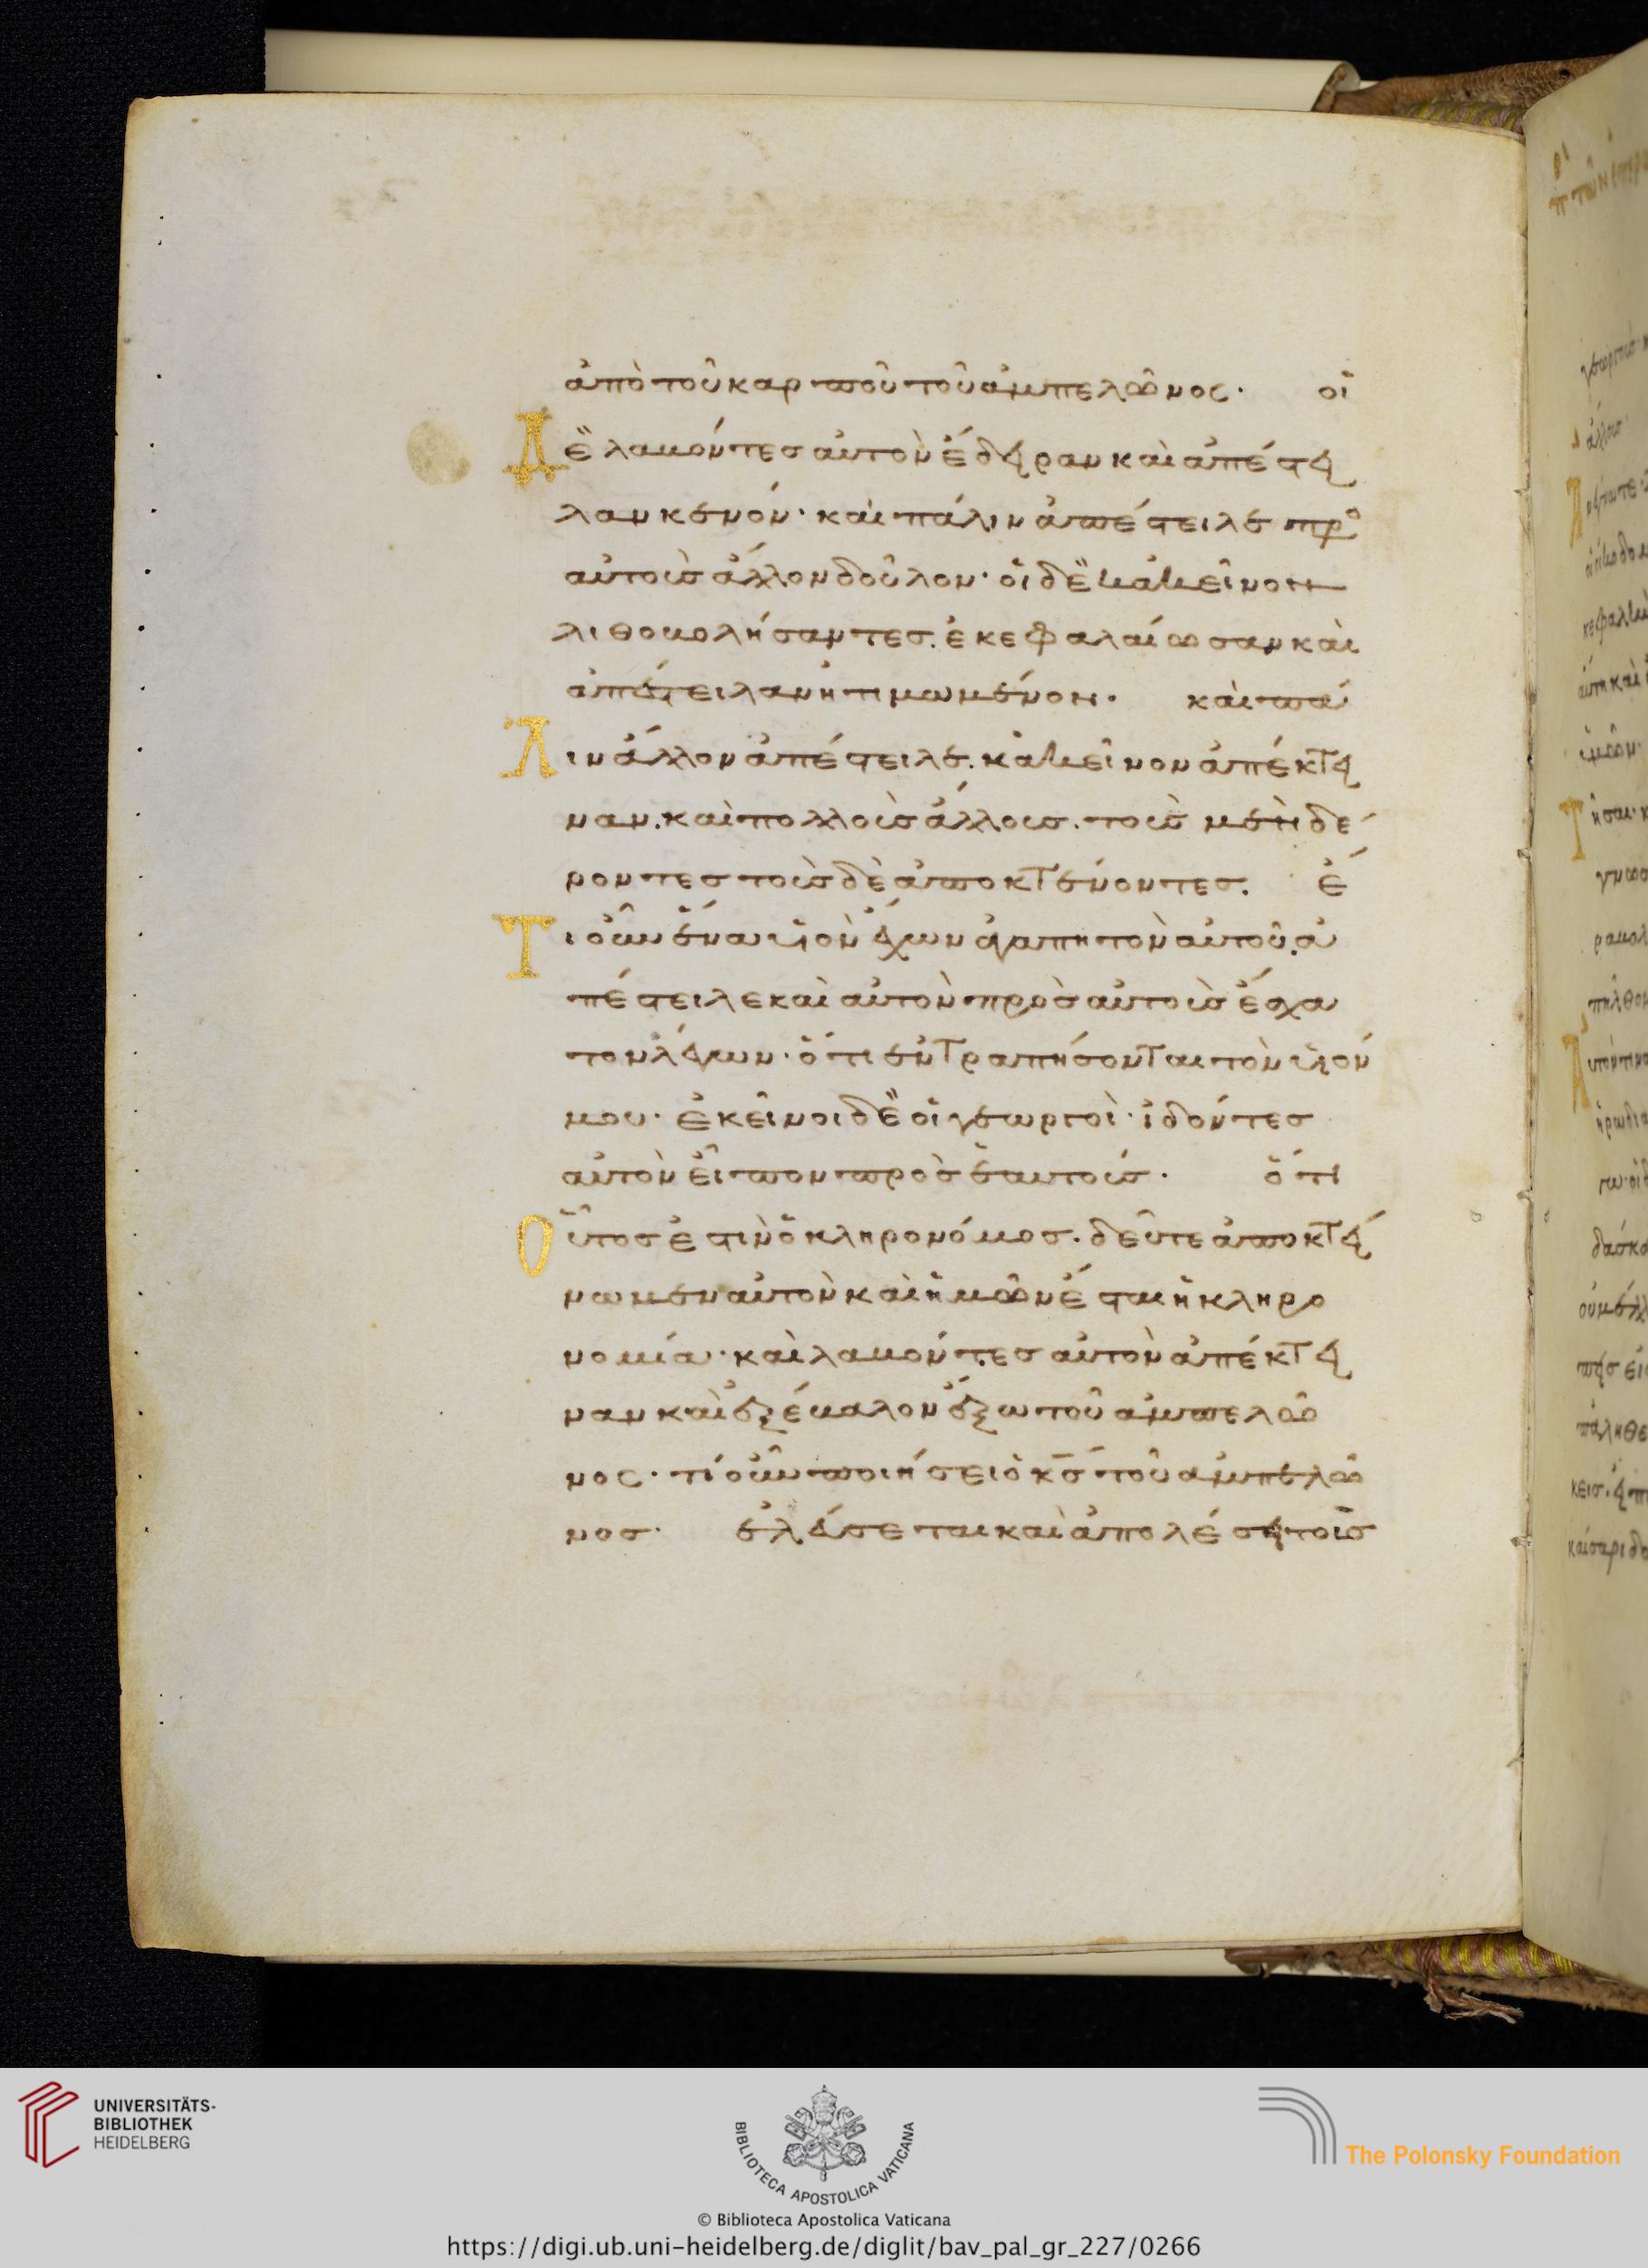 ἀπὸ τοῦ καρποῦ τοῦ ἀμπελῶνος· οἱ
Δὲ λαβόντες αὐτὸν ἔδειραν καὶ ἀπέστει
λαν κενόν· καὶ πάλιν ἀπέστειλε πρὸ
αὐτοὺς ἄλλον δοῦλον· οἱ δὲ κἀκεῖνον
λιθοβολήσαντες. ἐκεφαλαίωσαν καὶ
ἀπέστειλαν ἠτιμωμένον. καὶ πά
Λιν ἄλλον ἀπέστειλε. κἀκεῖνον ἀπέκτει
ναν. καὶ πολλοὺς ἄλλους. τοὺς μὲν δέ
ροντες τοὺς δὲ ἀποκτένοντες. ἔ
Τι οὖν ἕνα υἱὸν ἔχων ἀγαπητὸν αὐτοῦ. ἀ
πέστειλε καὶ αὐτὸν πρὸς αὐτοὺς ἔσχα
τον λέγων· ὅτι ἐντραπήσονται τὸν υἱόν
μου· ἐκεῖνοι δὲ οἱ γεωργοὶ· ἰδόντες
αὐτὸν εἶπον πρὸς ἑαυτούς· ὅτι
Οὗτος ἐστὶν ὁ κληρονόμος. δεῦτε ἀποκτεί
νωμεν αὐτὸν καὶ ἡμῶν ἔσται ἡ κληρο
νομία· καὶ λαβόντες αὐτὸν ἀπέκτει
ναν καὶ ἐξέβαλον ἔξω τοῦ ἀμπελῶ
νος· τί οὖν ποιήσει ὁ κς τοῦ ἀμπελῶ
νος· ἐλεύσεται καὶ ἀπολέσει τοὺς
UNIVERSITÄTS-
BIBLIOTHEK
HEIDELBERG
BIBLIOTECA APOSTOLICA VATICANA
The Polonsky Foundation
© Biblioteca Apostolica Vaticana
https://digi.ub.uni-heidelberg.de/diglit/bav_pal_gr_227/0266